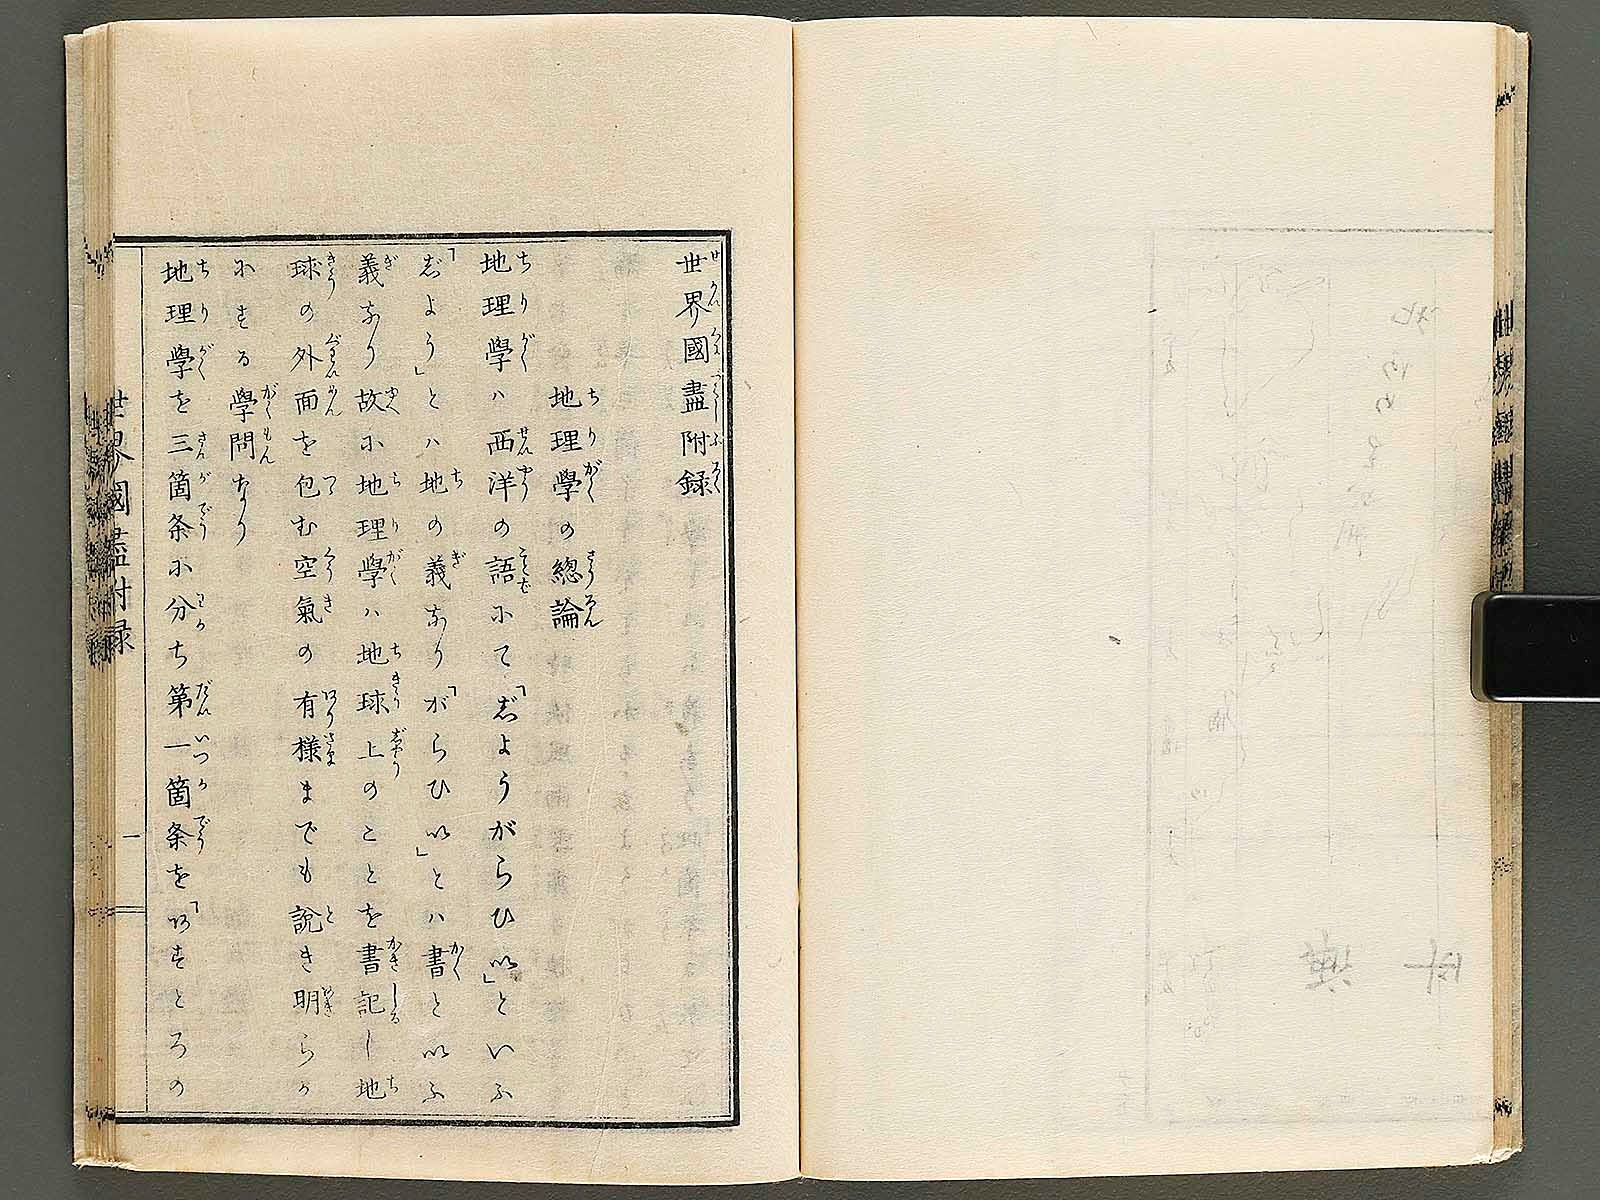 世界國盡附録
地理學の總論
地理學ハ西洋の語にて「じようがらひい」といふ
「じよう」とハ地の義なり「がらひい」とハ書くといふ
義なり故に地理學ハ地球上のことを書記し地
球の外面を包む空氣の有様までも説き明らか
にする學問なり
地理學を三箇条に分ち第一箇条を「あすとろの
世界國盡附録
一